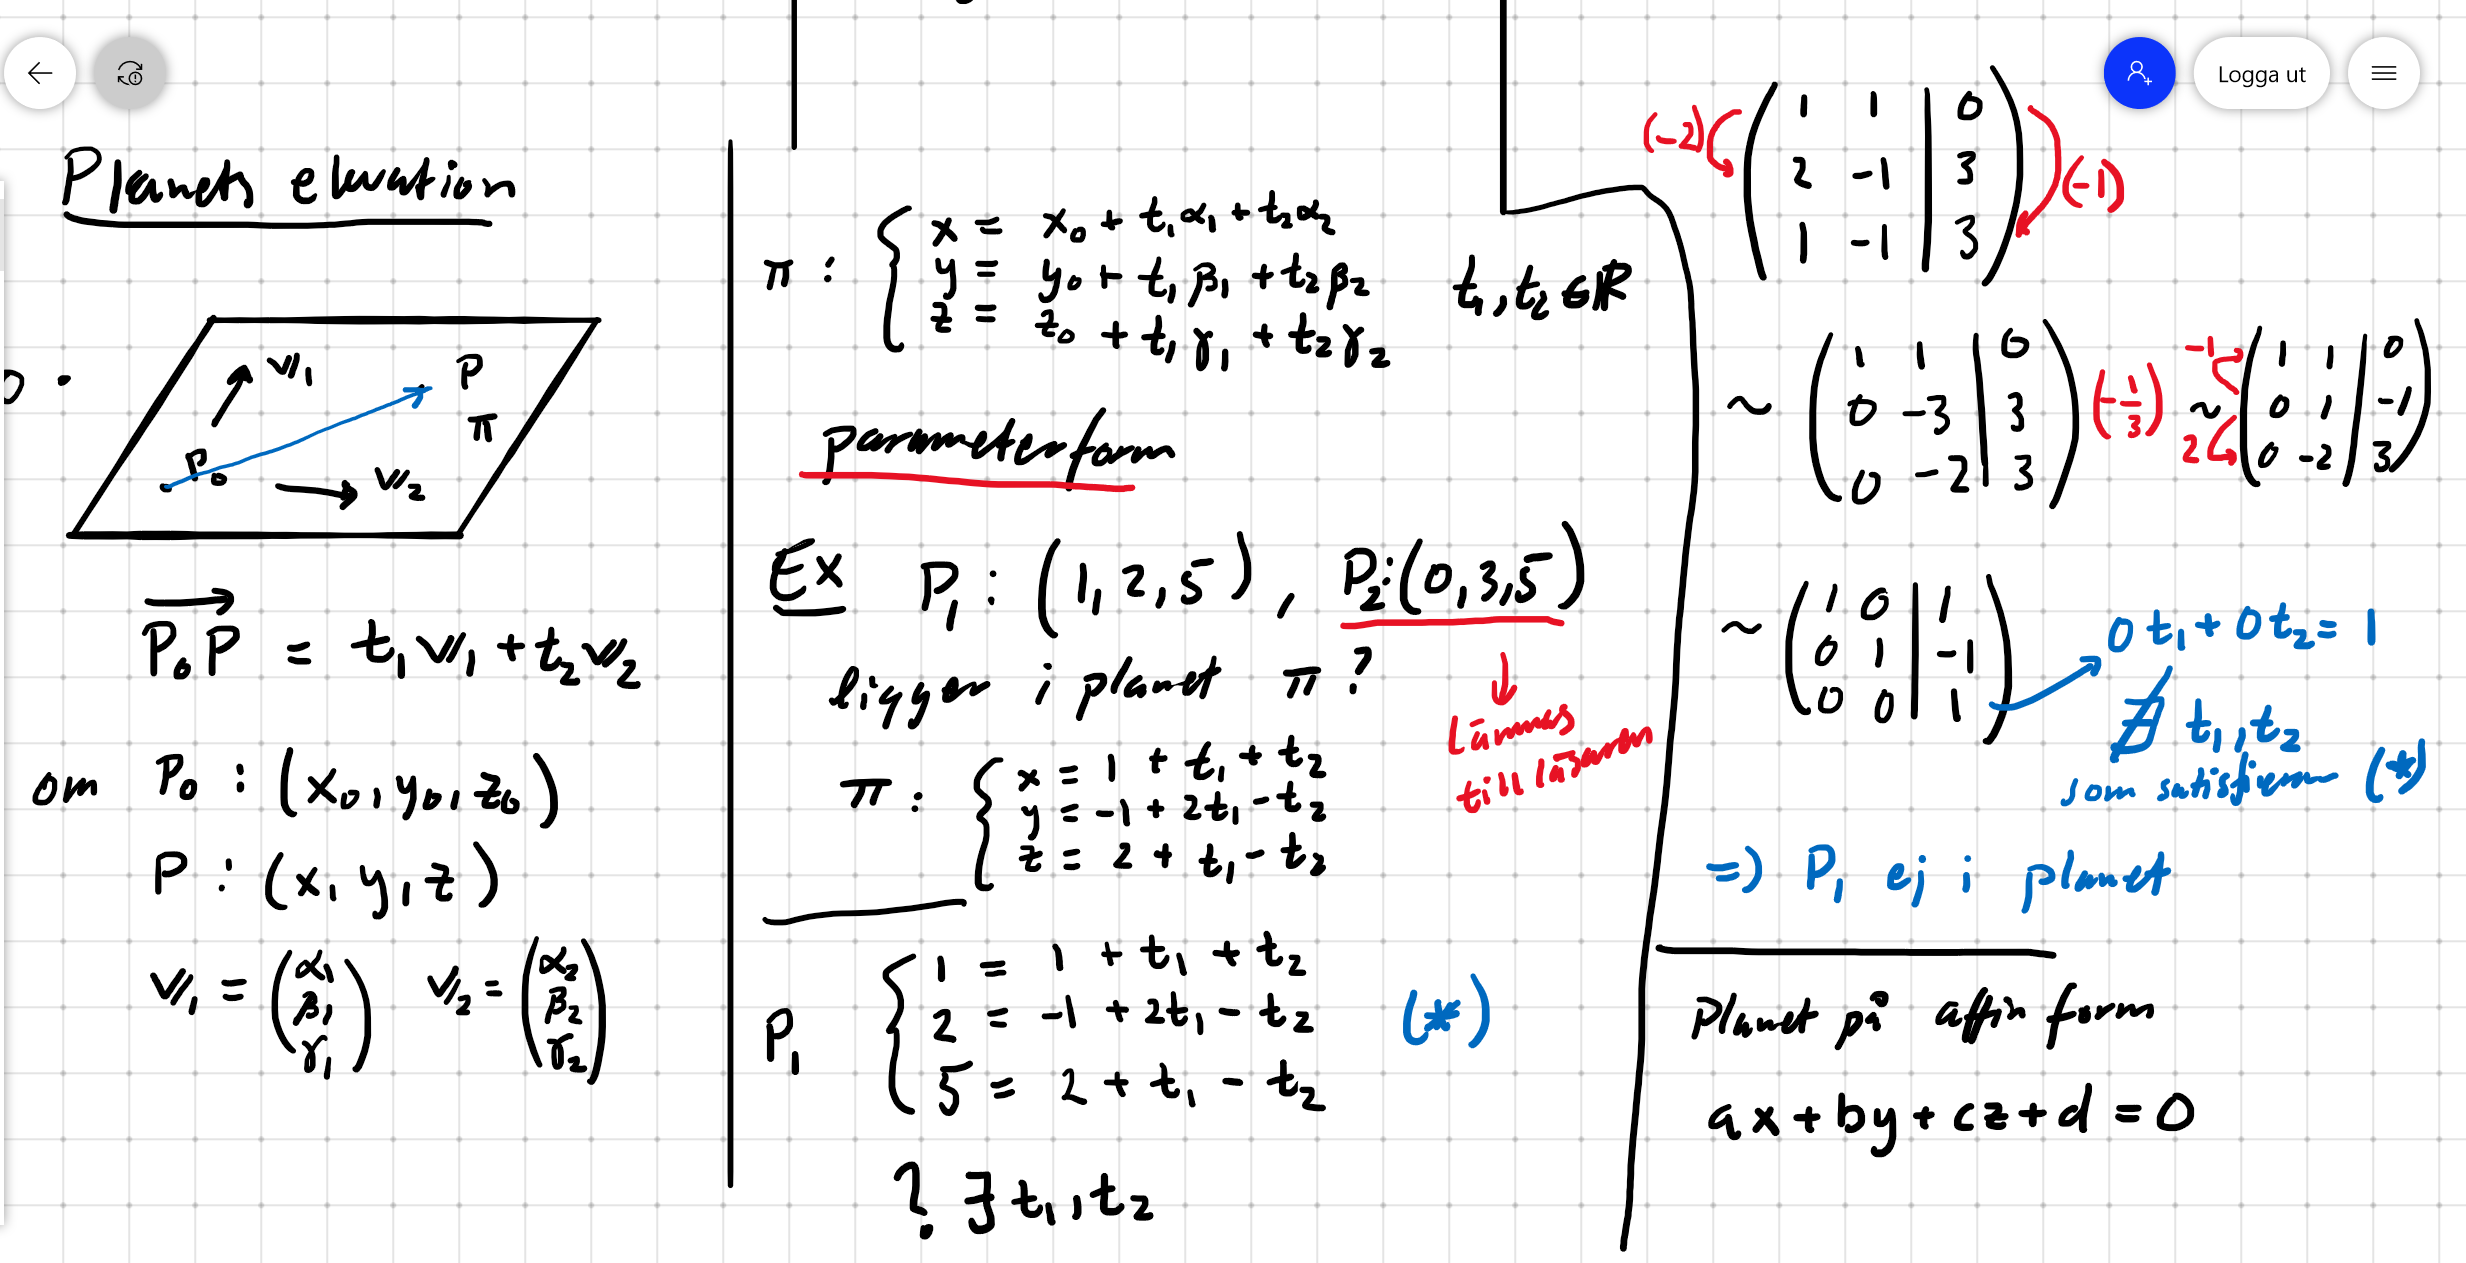 Logga ut
Planets ekvation
O
v₁
P
π
P₀
v₂
P₀P = t₁v₁ + t₂v₂
om P₀ : (x₀, y₀, z₀)
P : (x, y, z)
v₁ = (α₁ β₁ γ₁) v₂ = (α₂ β₂ γ₂)
π : { x = x₀ + t₁α₁ + t₂α₂
y = y₀ + t₁β₁ + t₂β₂
z = z₀ + t₁γ₁ + t₂γ₂
t₁, t₂ ∈ ℝ
parameterform
Ex P₁ : (1, 2, 5), P₂:(0, 3, 5)
ligger i planet π?
↓
Lämnas
till läsaren
π : { x = 1 + t₁ + t₂
y = -1 + 2t₁ - t₂
z = 2 + t₁ - t₂
P₁ { 1 = 1 + t₁ + t₂
2 = -1 + 2t₁ - t₂ (*)
5 = 2 + t₁ - t₂
? ∃ t₁, t₂
(-2) (-1)
1 1 | 0
2 -1 | 3
1 -1 | 3
~
1 1 | 0
0 -3 | 3
0 -2 | 3
(-1/3)
~
-1
2
1 1 | 0
0 1 | -1
0 -2 | 3
~
1 0 | 1
0 1 | -1
0 0 | 1
0t₁ + 0t₂ = 1
∄ t₁, t₂
som satisfierar (*)
=> P₁ ej i planet
Planet på affin form
ax + by + cz + d = 0